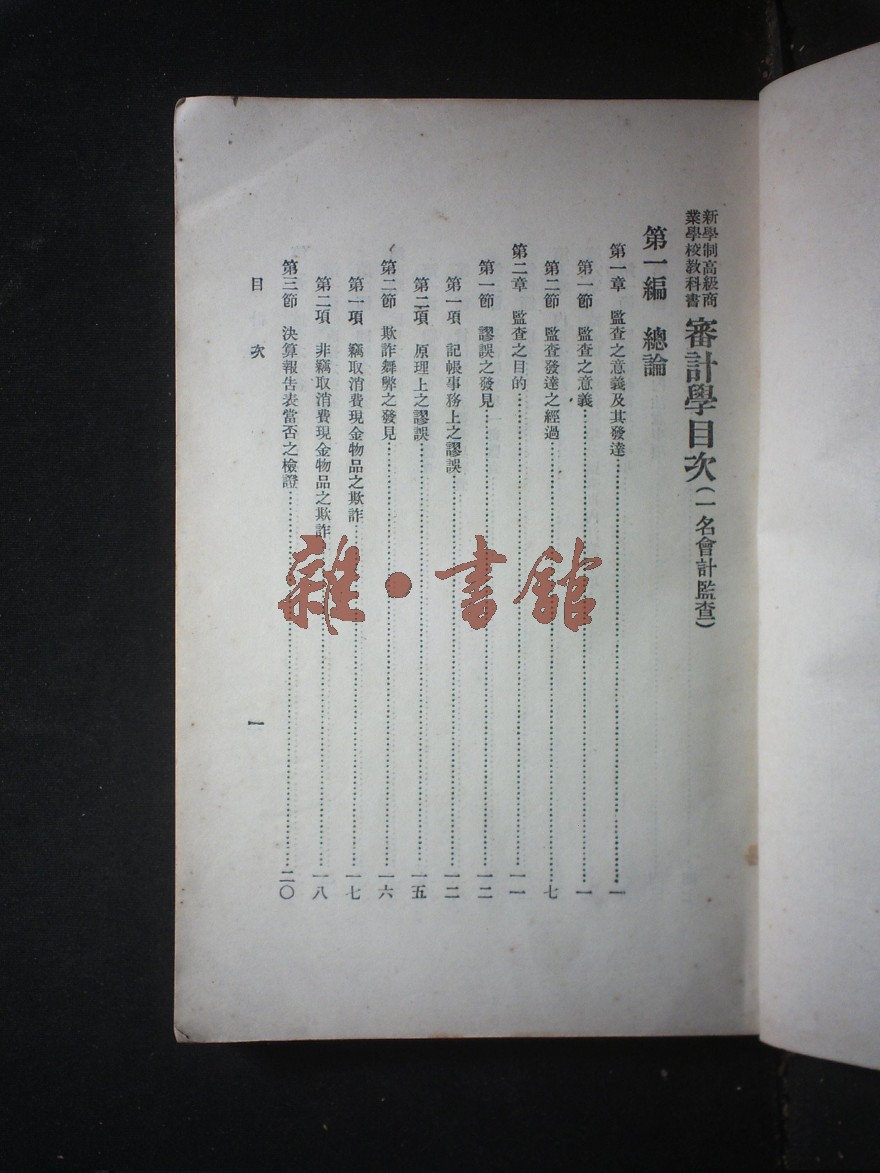 新學制高級商
業學校教科書
審計學目次(一名會計監查)
第一編 總論
第一章 監查之意義及其發達……一
第一節 監查之意義……一
第二節 監查發達之經過……七
第二章 監查之目的……一一
第一節 謬誤之發見……一二
第一項 記帳事務上之謬誤……一二
第二項 原理上之謬誤……一五
第二節 欺詐舞弊之發見……一六
第一項 竊取消費現金物品之欺詐……一七
第二項 非竊取消費現金物品之欺詐……一八
第三節 決算報告表當否之檢證……二〇
目次 一
雜·書館